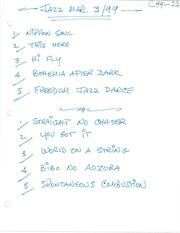 JAZZ MAR. 3/99
1 NIPPON SOUL
2 THIS HERE
3 HI FLY
4 BOHEMIA AFTER DARK
5 FREEDOM JAZZ DANCE
1 STRAIGHT NO CHASER
2 YOU GOT IT
3 WORLD ON A STRING
4 BIBO NO AOZORA
5 SPONTANEOUS COMBUSTION